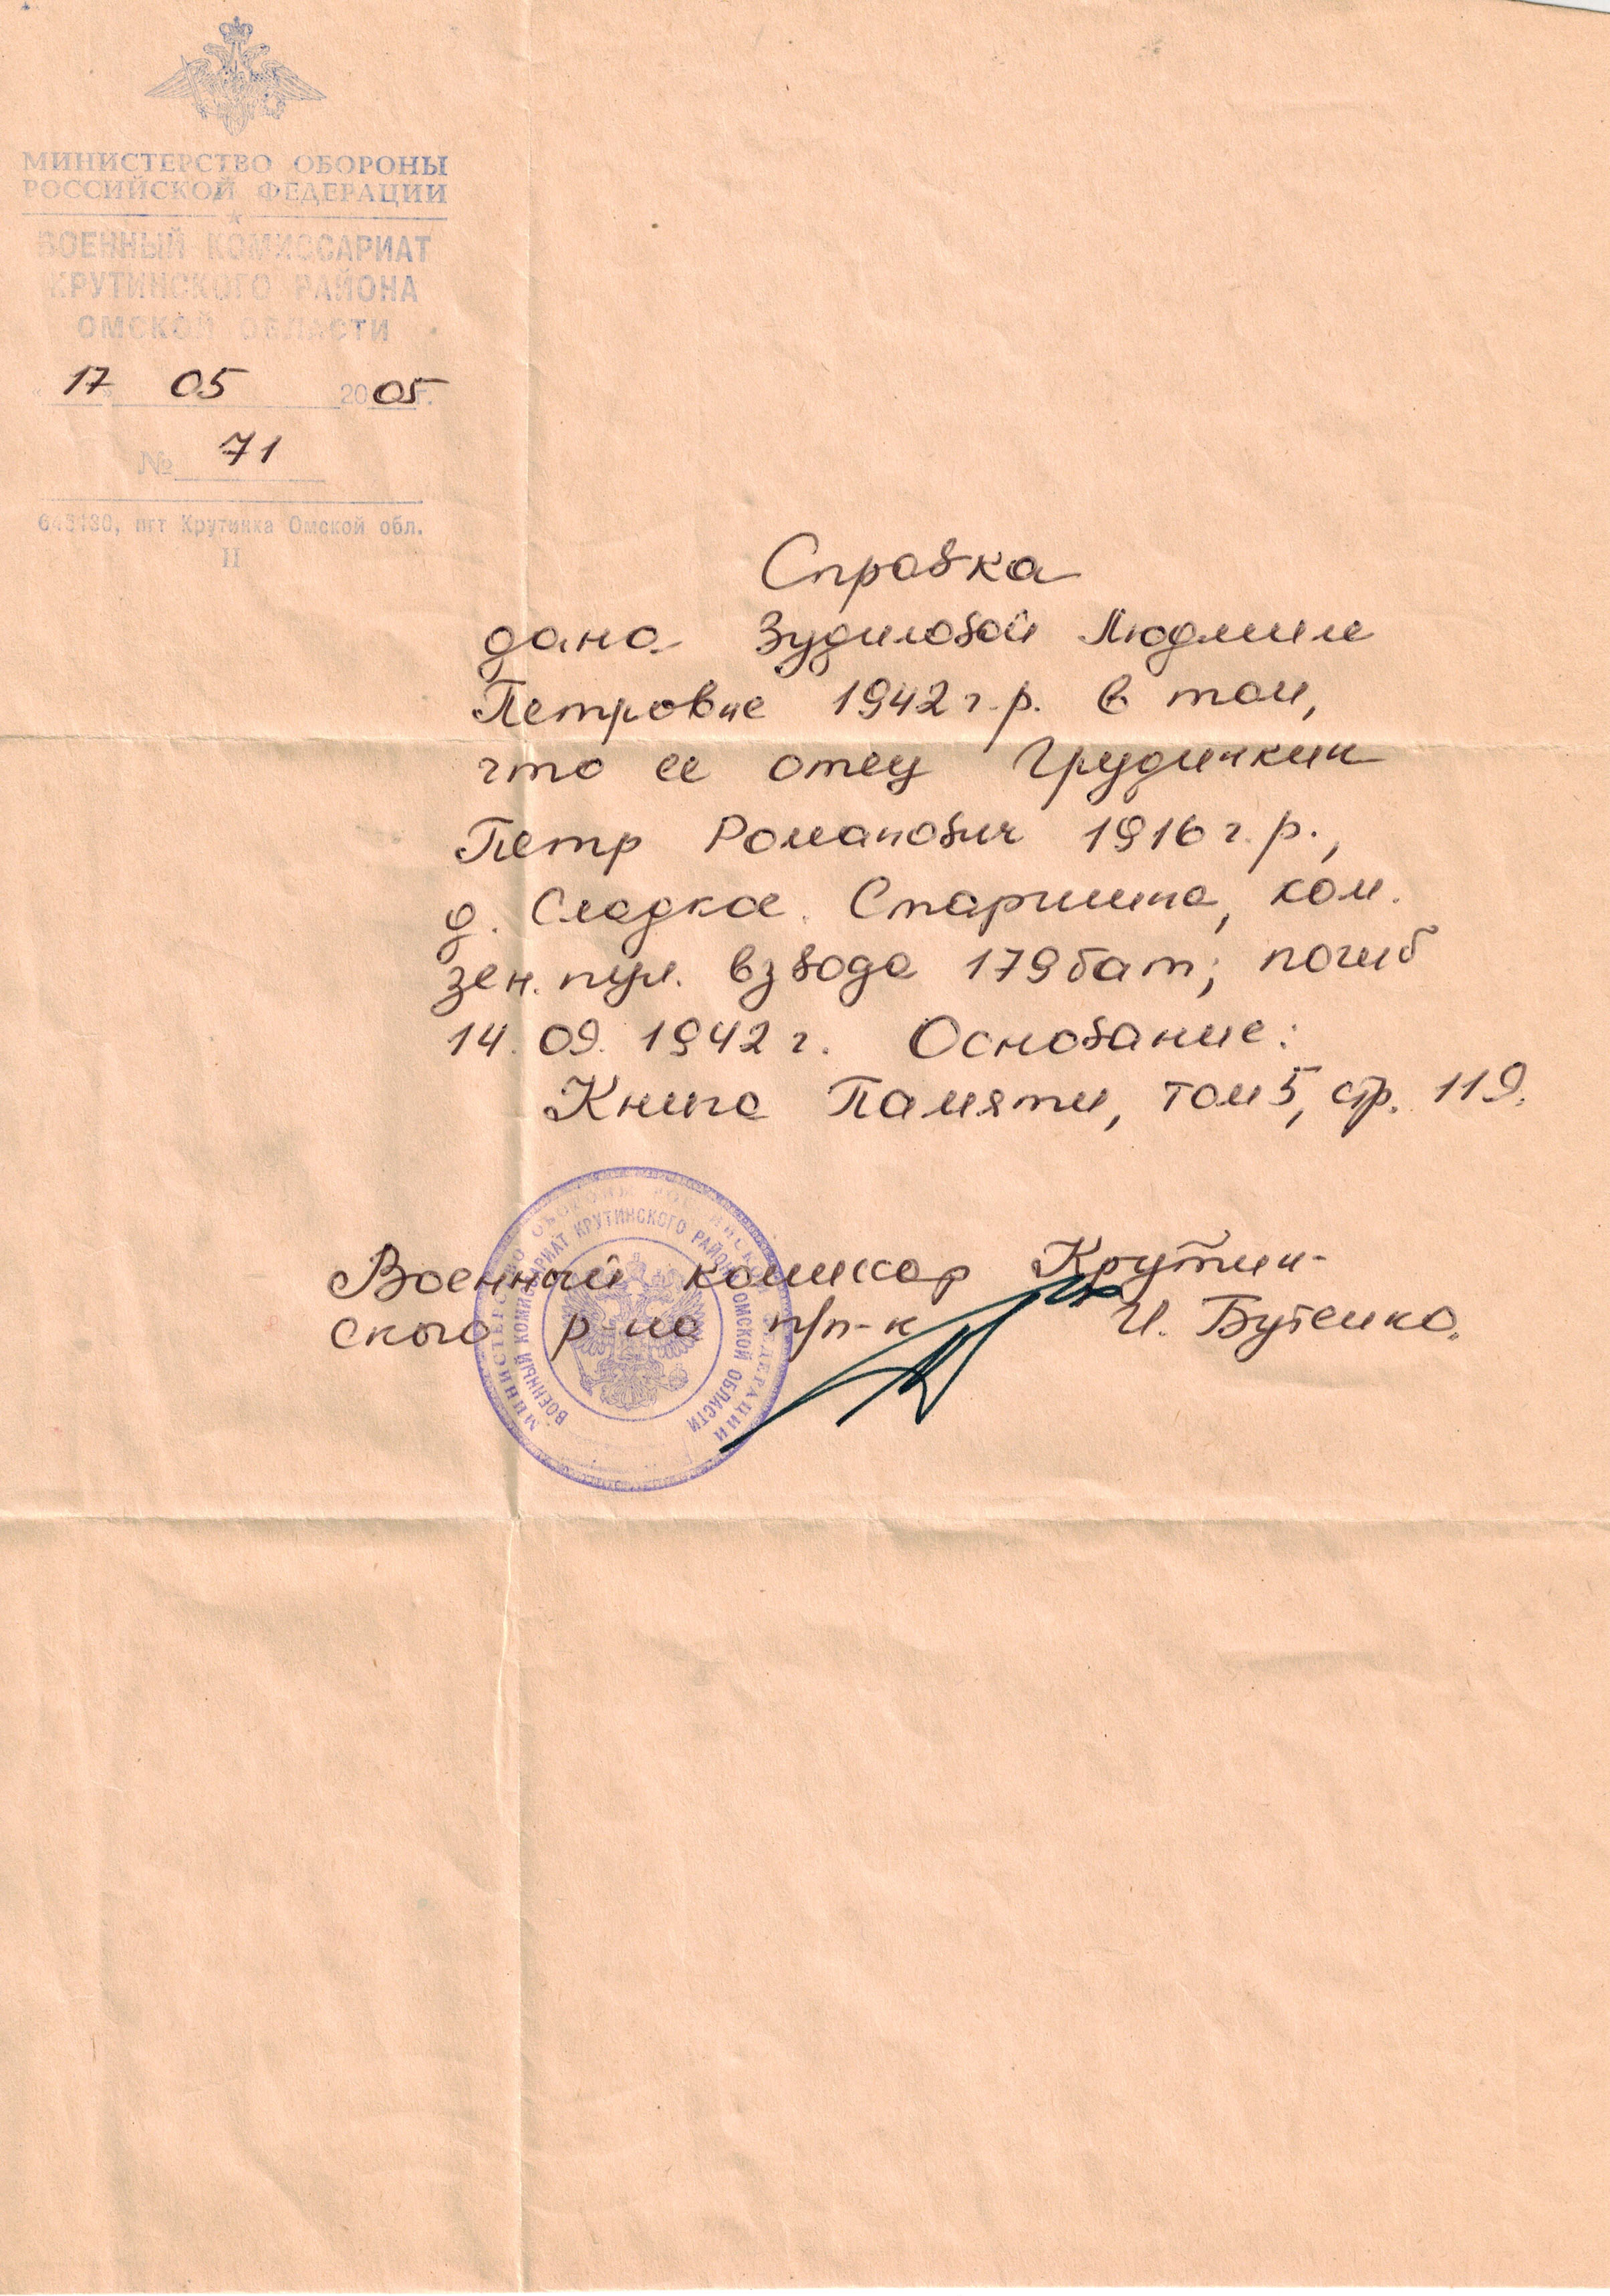 МИНИСТЕРСТВО ОБОРОНЫ
РОССИЙСКОЙ ФЕДЕРАЦИИ
ВОЕННЫЙ КОМИССАРИАТ
КРУТИНСКОГО РАЙОНА
ОМСКОЙ ОБЛАСТИ
"17" 05 2005 г.
№ 71
пгт Крутинка Омской обл.
II
Справка
дана Зудиловой Людмиле
Петровне 1942 г.р. в том,
что ее отец Грудинкин
Петр Романович 1916 г.р.,
д. Сладкое. Старшина, ком.
зен. пул. взвода 179 бат; погиб
14.09.1942 г. Основание:
Книга Памяти, том 5, стр. 119.
Военный комиссар Крутин-
ского р-на п/п-к И. Бутенко.
МИНИСТЕРСТВО ОБОРОНЫ РОССИЙСКОЙ ФЕДЕРАЦИИ
ВОЕННЫЙ КОМИССАРИАТ КРУТИНСКОГО РАЙОНА ОМСКОЙ ОБЛАСТИ